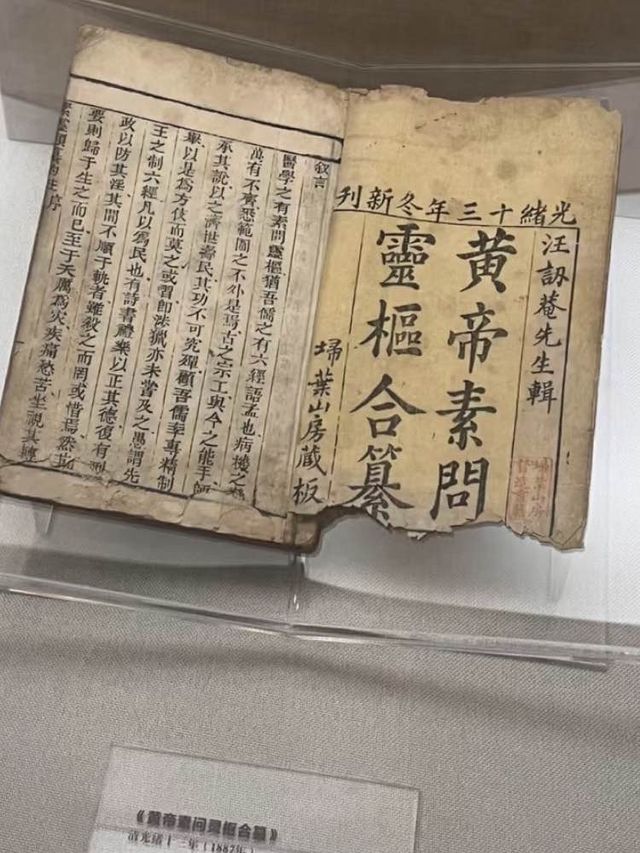 光緒十三年冬新刊
汪訒菴先生輯
黃帝素問
靈樞合纂
埽葉山房藏板
埽葉山房
督造書籍
叙言
醫學之有素問靈樞猶吾儒之有六經語孟也病機之變
萬有不齊悉範圍之不外是焉古之宗工與今之能手師
承其說以之濟世壽民其功不可究殫顧吾儒率專精制
舉以是為方伎而莫之或習即涉獵亦未嘗及之愚謂先
王之制六經凡以為民也有詩書禮樂以正其德復有刑
政以防其淫其間不順于軌者雖殺之而罔或惜焉然其
要則歸于生之而已至于天厲為災疾痛愁苦坐視其轉
《黄帝素问灵枢合纂》
清光绪十三年（1887年）